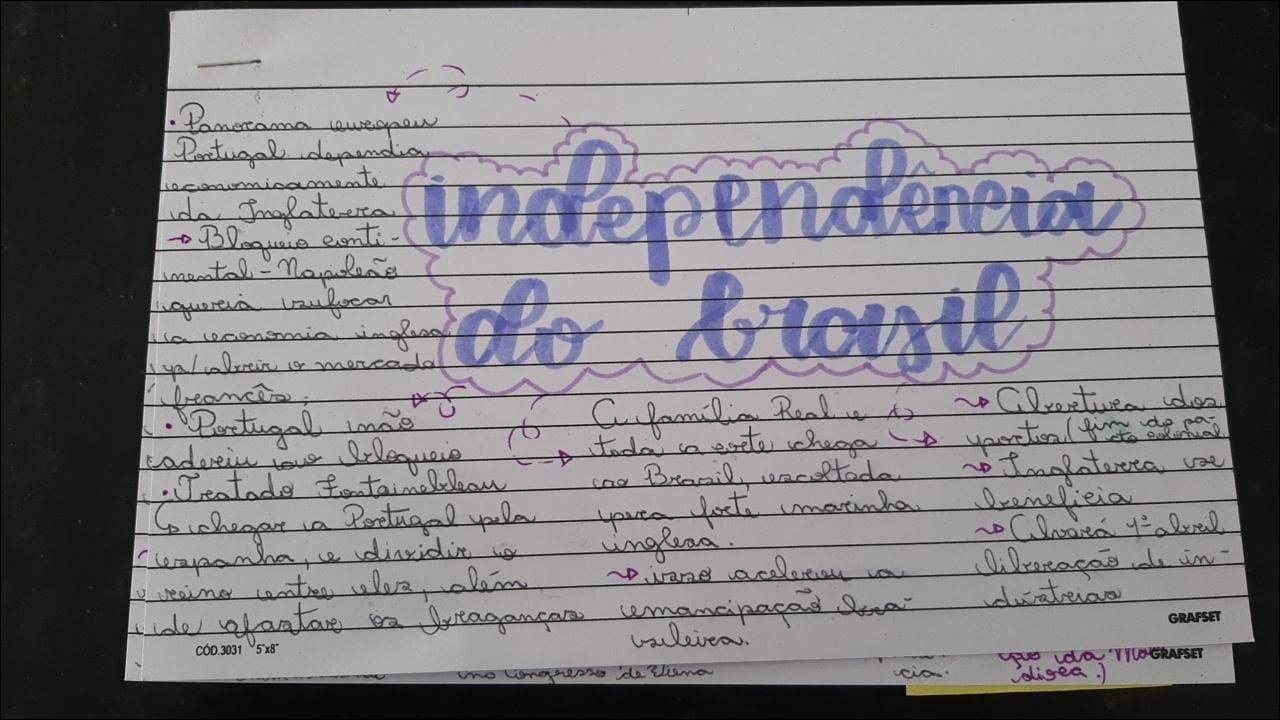 independência
do brasil
• Panorama europeu
Portugal dependia
economicamente
da Inglaterra
→ Bloqueio conti-
nental - Napoleão
queria sufocar
a economia inglesa
p/ abrir o mercado
francês;
• Portugal não
aderiu ao bloqueio
• Tratado Fontainebleau
↳ chegar a Portugal pela
espanha, e dividir o
reino entre eles, além
de afastar os braganças
A família Real e
toda a corte chega
ao Brasil, escoltada
pera forte marinha
inglesa.
→ isso acelerou a
emancipação bra-
sileira.
→ Abertura dos
portos (fim do pa-
cto colonial
→ Inglaterra se
beneficia
→ Alvará 1º abril
liberação de in-
dústrias
CÓD.3031 5"x8"
GRAFSET
no congresso de Viena
cia.
ção da
GRAFSET
direa.)